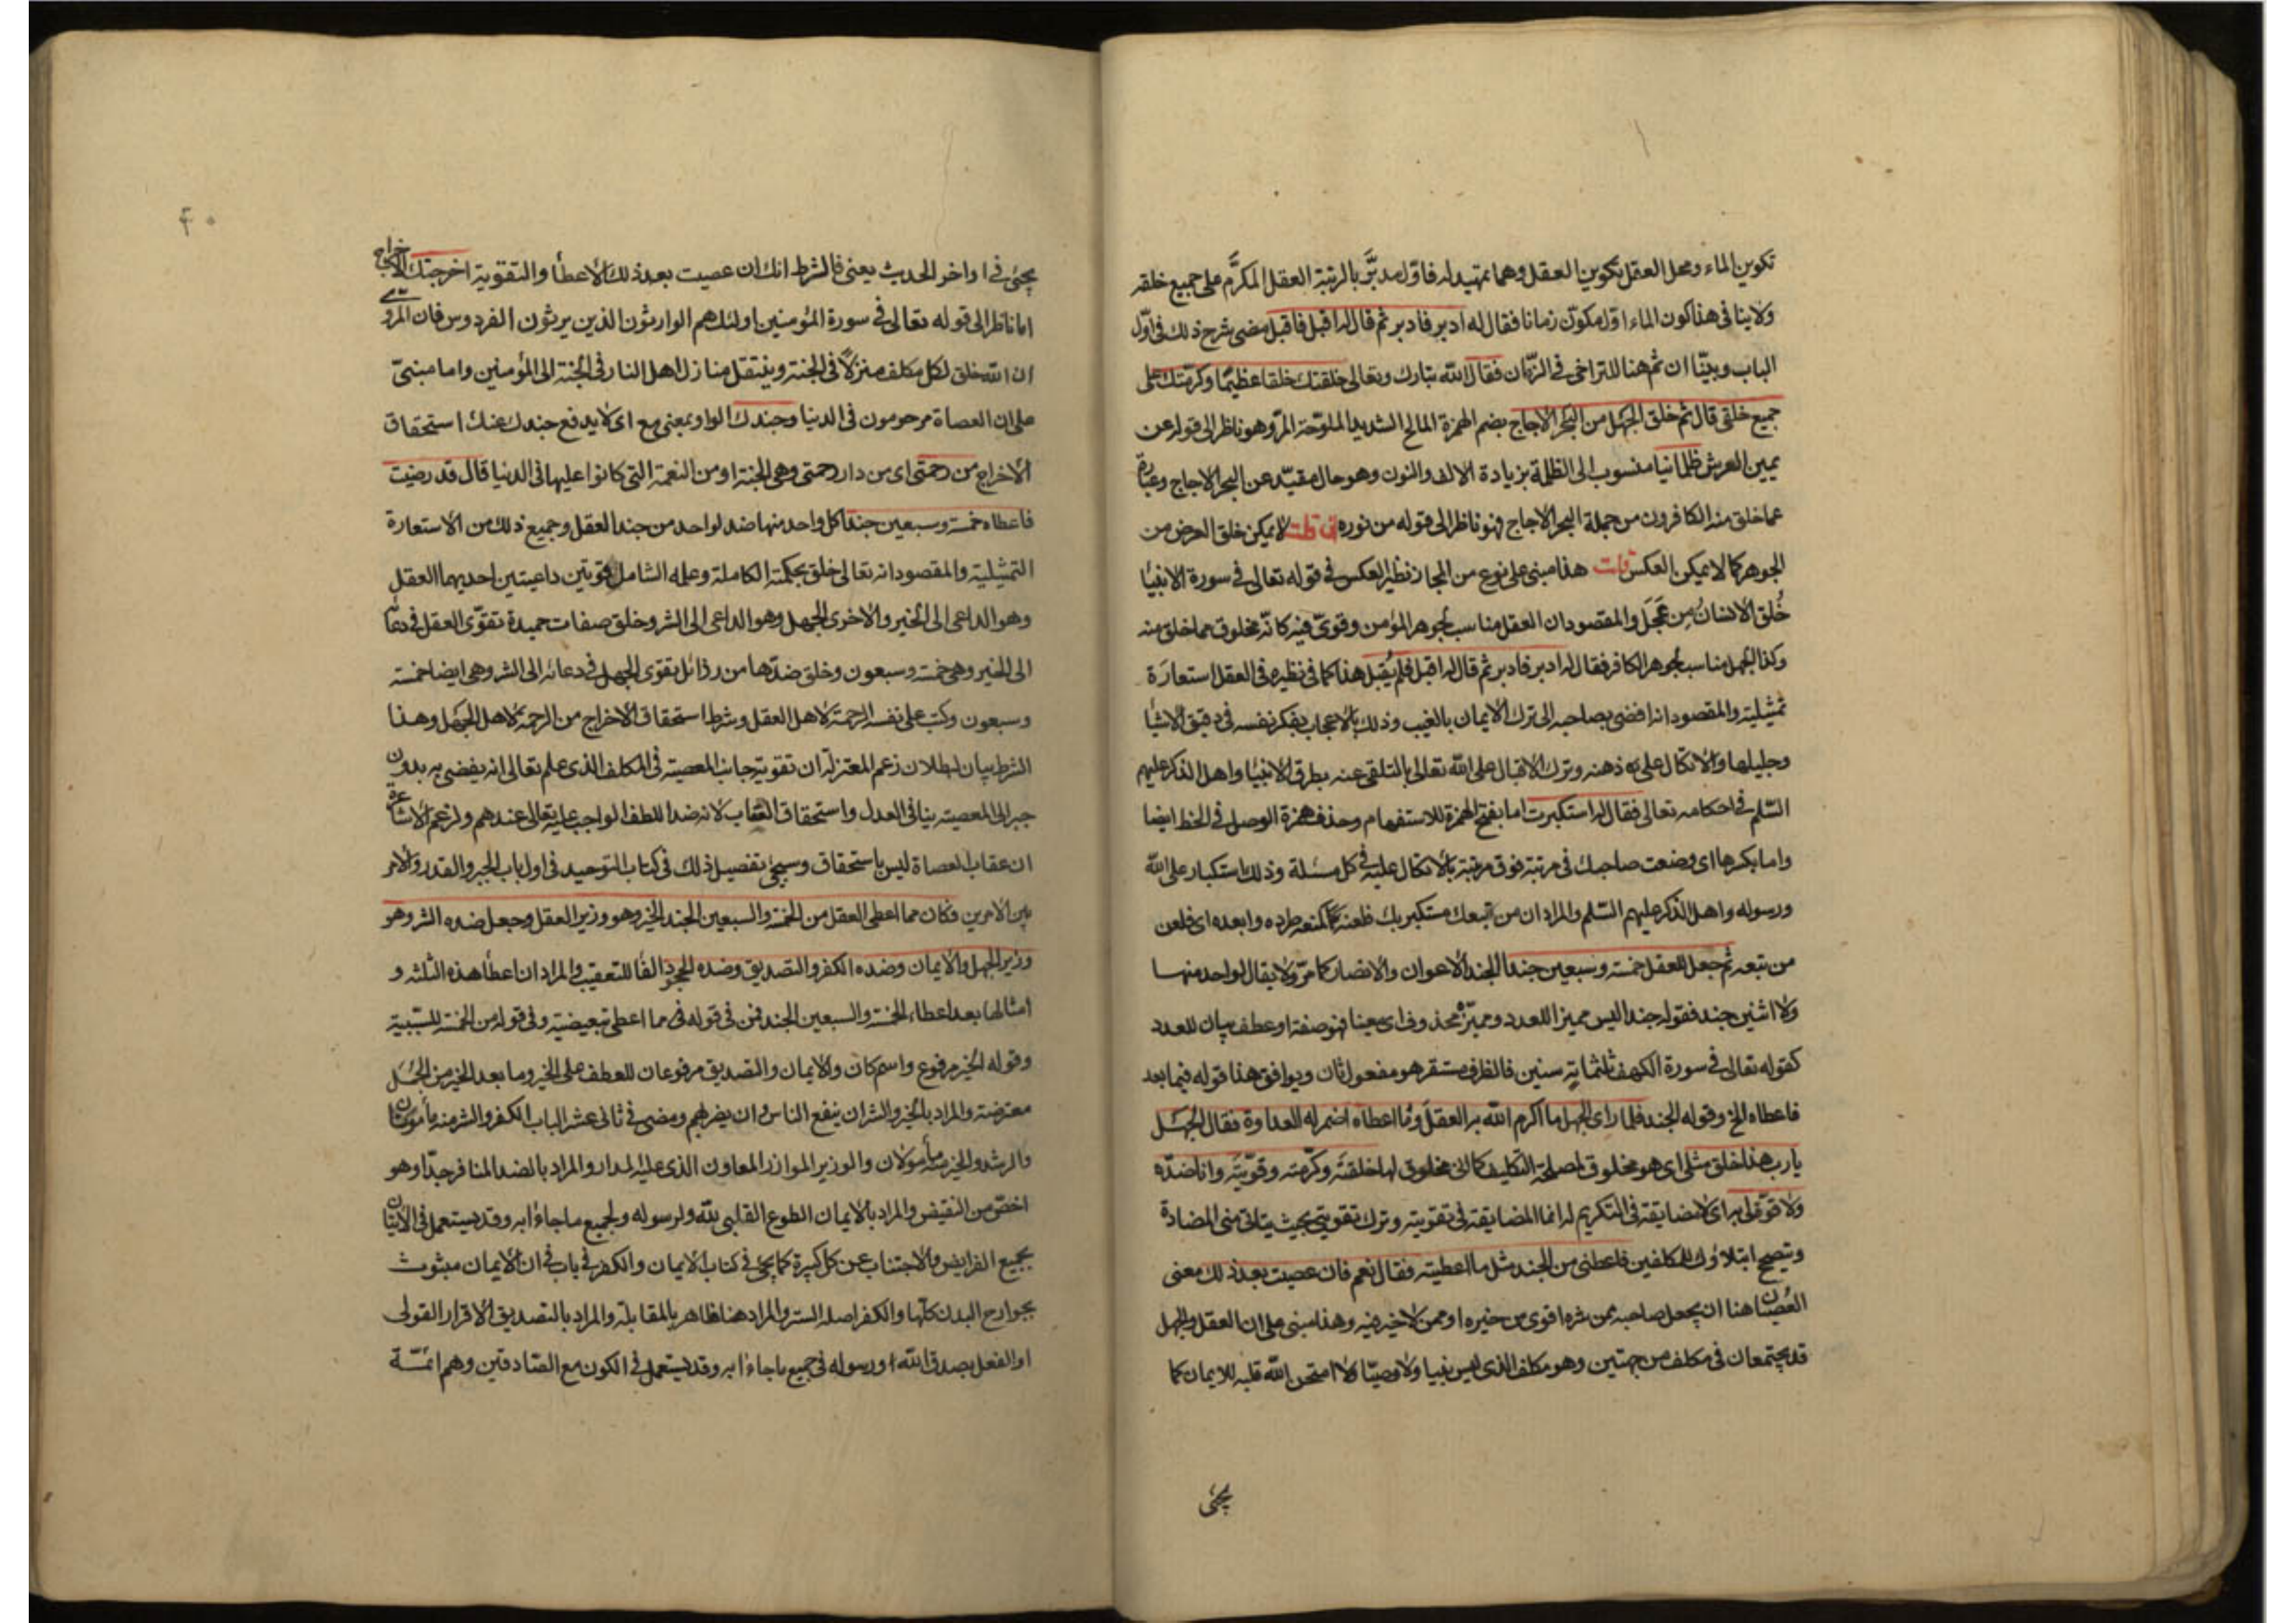 تكوين الماء ومحل العقل بتكوين العقل وهما تمهيد له فاوّل مدبَّر بالرتبة العقل المكرَّم على جميع خلقه
ولا ينافى هذا كون الماء اوّل مكوّن زمانا فقال له ادبر فادبر ثم قال له اقبل فاقبل مضى شرح ذلك فى اوّل
الباب وبيّنا ان ثم هنا للتراخى فى الزمان فقال الله تبارك وتعالى خلقتك خلقا عظيمًا وكرمتك على
جميع خلقى قال ثم خلق الجهل من البحر الاجاج بضم الهمزة المالح الشديد الملوحة المرّ وهو ناظر الى قوله عن
يمين العرش ظلمانيا منسوب الى الظلمة بزيادة الالف والنون وهو حال مقيّد عن البحر الاجاج وعبارة
عما خلق منه الكافرون من جملة البحر الاجاج فهو ناظر الى قوله من نوره ان قلت لا يمكن خلق العرض من
الجوهر كما لا يمكن العكس قلت هذا مبنى على نوع من المجاز نظير العكس فى قوله تعالى فى سورة الانبيا
خُلق الانسانُ مِن عَجَل والمقصود ان العقل مناسب لجوهر المؤمن وقوىّ فيه كانّه مخلوق مما خلق منه
وكذا الجهل مناسب لجوهر الكافر فقال له ادبر فادبر ثم قال له اقبل فلم يُقبل هذا كما فى نظيره فى العقل استعارَة
تمثيلية والمقصود انه افضى بصاحبه الى ترك الايمان بالغيب وذلك بالاعجاب بفكر نفسه فى دقيق الاشيا
وجليلها والاتكال على ذهنه وترك الاقبال على الله تعالى بالتلقى عنه بطرق الانبيا واهل الذكر عليهم
السّلم فى احكامه تعالى فقال له استكبرت اما بفتح الهمزة للاستفهام وحذف همزة الوصل فى الخط ايضا
واما بكسرها اى وضعت صاحبك فى مرتبة فوق مرتبة بالاتكال عليه فى كل مسئلة وذلك استكبار على الله
ورسوله واهل الذكر عليهم السّلم والمراد ان من تبعك مستكبر بك فلعنه كمنعه طرده وابعده اى فلعن
من تبعه ثم جعل للعقل خمسة وسبعين جندا الجند الاعوان والانصار كما مرّ ولا يقال لواحد منهما
ولا اثنين جند فقوله جندا ليس مميزا للعدد ومميّزه محذوف اى معينا فهو صفة او عطف بيان للعدد
كقوله تعالى فى سورة الكهف ثلثمائةٍ سنين فالظرف مستقر هو مفعول ثان ويوافق هذا قوله فيما بعد
فاعطاه الخ وقوله الجند فلما راى الجهل ما اكرم الله به العقلَ وما اعطاه اضمر له العداوة فقال الجهل
يا رب هذا خلق مثلى اى هو مخلوق لمصلحة التكليف كما انى مخلوق لها خلقتَه وكرّمته وقوّيته وانا ضدّه
ولا قوّة لى به اى لا مضايقة فى التكريم له انما المضايقة فى تقويته وترك تقويتى بحيث يتاتى منى المضادة
وتصحح ابتلاؤك للمكلفين فاعطنى من الجند مثل ما اعطيته فقال نعم فان عصيت بعد ذلك معنى
العصيان هنا ان يجعل صاحبه ممن شره اقوى من خيره او ممن لا خير فيه وهذا مبنى على ان العقل والجهل
قد يجتمعان فى مكلف من جهتين وهو مكلف الذى ليس نبيا ولا وصيّا ولا امتحن الله قلبه للايمان كما
يجئ
۴۰
يجئ فى اواخر الحديث يعنى فالشرط انك ان عصيت بعد ذلك الاعطأ والتقوية اخرجتك الاخراج
اما ناظر الى قوله تعالى فى سورة المؤمنين اولئك هم الوارثون الذين يرثون الفردوس فان المروى
ان الله خلق لكل مكلف منزلاً فى الجنة وينتقل منازل اهل النار فى الجنة الى المؤمنين واما مبنىّ
على ان العصاة مرحومون فى الدنيا وجندك الواو بمعنى مع اى لا يدفع جندك عنك استحقاق
الاخراج من رحمتى اى من دار رحمتى وهى الجنة او من النعمة التى كانوا عليها فى الدنيا قال قد رضيت
فاعطاه خمسة وسبعين جندا كل واحد منها ضد لواحد من جند العقل وجميع ذلك من الاستعارة
التمثيلية والمقصود انه تعالى خلق بحكمته الكاملة وعلمه الشامل قوتين داعيتين احديهما العقل
وهو الداعى الى الخير والاخرى الجهل وهو الداعى الى الشر وخلق صفات حميدة تقوّى العقل فى دعائه
الى الخير وهى خمسة وسبعون وخلق ضدّها من رذائل تقوى الجهل فى دعائه الى الشر وهى ايضا خمسة
وسبعون وكتب على نفسه الرحمة لاهل العقل وشرط استحقاق الاخراج من الرحمة لاهل الجهل وهذا
الشرط بيان لبطلان زعم المعتزلة ان تقوية جانب المعصية فى المكلف الذى علم تعالى انه يفضى به بدون
جبر الى المعصية ينافى العدل واستحقاق العقاب لانه ضد اللطف الواجب عليه تعالى عندهم ولزعم الاشاعرة
ان عقاب العصاة ليس باستحقاق وسيجئ تفصيل ذلك فى كتاب التوحيد فى اول باب الجبر والقدر والامر
بين الامرين فكان مما اعطى العقل من الخمسة والسبعين الجند الخير وهو وزير العقل وجعل ضده الشر وهو
وزير الجهل والايمان وضده الكفر والتصديق وضده الجحود الفا للتعقيب والمراد ان اعطأ هذه الثلثة و
امثالها بعد اعطاء الخمسة والسبعين الجند فمن فى قوله فى مما اعطى تبعيضية وفى قوله من الخمسة للسّببية
وقوله الخير مرفوع واسم كان والايمان والتصديق مرفوعان للعطف على الخير وما بعد الخير من الجمل
معترضة والمراد بالخير والشر ان ينفع الناس وان يضرهم ومضى فى ثانى عشر الباب الكفر والشر منه مأمونان
والرشد والخير منه مأمولان والوزير الموازر المعاون الذى عليه المدار والمراد بالضد المنافر جدّا وهو
اخصّ من النقيض والمراد بالايمان الطوع القلبى لله ولرسوله ولجميع ما جاءا به وقد يستعمل فى الاتيان
بجميع الفرايض والاجتناب عن كل كبيرة كما يجئ فى كتاب الايمان والكفر فى باب فى ان الايمان مبثوث
بجوارح البدن كلّها والكفر اصله الستر والمراد هنا ظاهر بالمقابلة والمراد بالتصديق الاقرار القولى
او الفعل بصدق الله ورسوله فى جميع ما جاءا به وقد يستعمل فى الكون مع الصّادقين وهم ائمّة